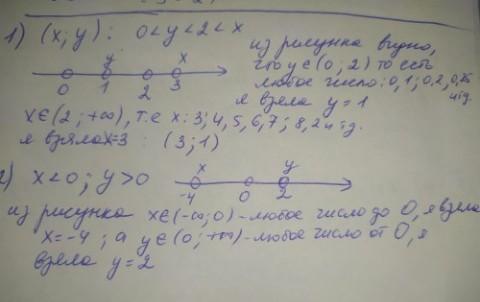 1) (x; y) : 0<y<2<x
из рисунка видно,
что y∈(0; 2) то есть
любое число: 0,1; 0,2, 0,85
и тд.
я взяла y=1
y x
0 1 2 3
x∈(2; +∞), т.е x: 3; 4, 5, 6, 7; 8,2 и тд.
я взяла x=3 : (3; 1)
2) x<0; y>0
x y
-4 0 2
из рисунка x∈(-∞; 0) - любое число до 0, я взяла
x=-4 ; а y∈(0; +∞) - любое число от 0, я
взяла y=2